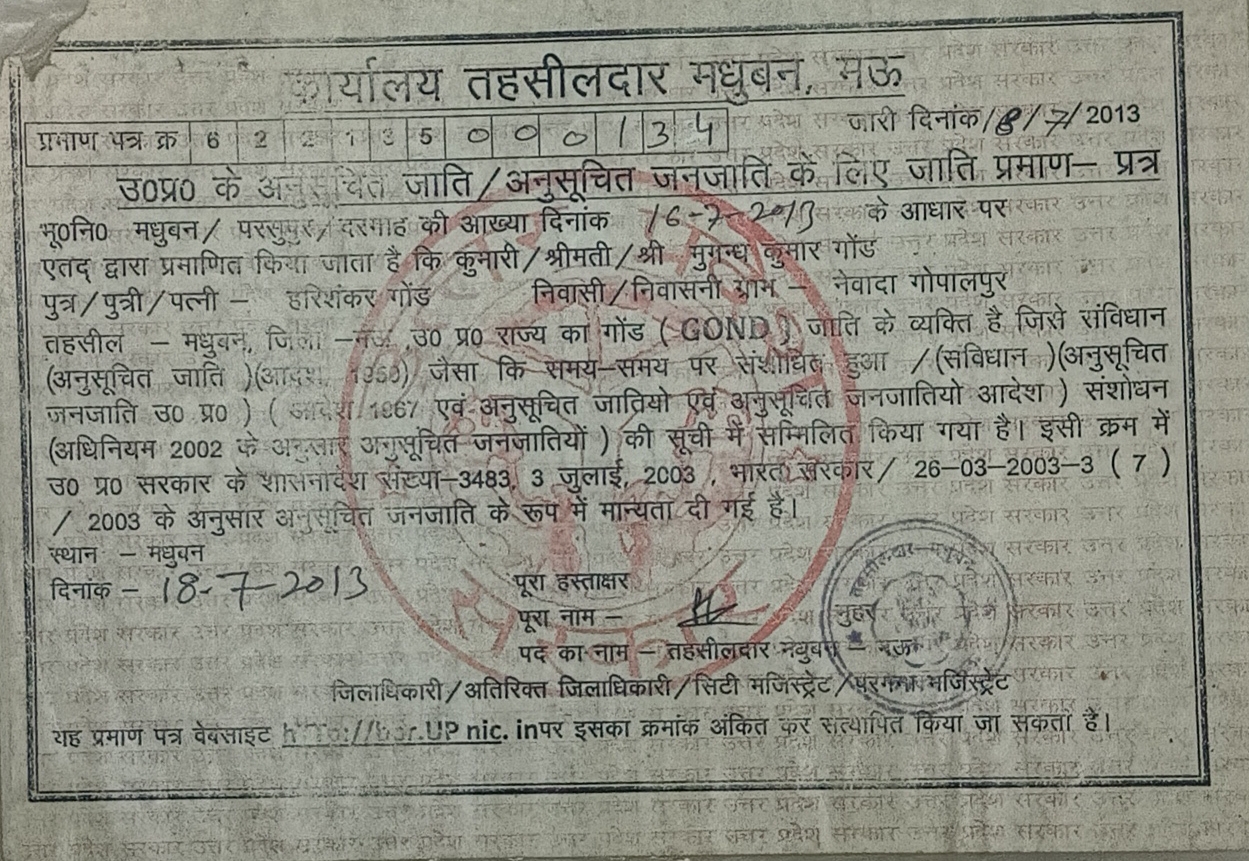 कार्यालय तहसीलदार मधुबन, मऊ
प्रमाण पत्र क्र 6 2 2 1 3 5 0 0 0 1 3 4 जारी दिनांक 18/7/2013
उ०प्र० के अनुसूचित जाति/अनुसूचित जनजाति के लिए जाति प्रमाण– प्रत्र
भू०नि० मधुबन/ परसुपुर/दरगाह की आख्या दिनांक 16-7-2013 के आधार पर
एतद् द्वारा प्रमाणित किया जाता है कि कुमारी/श्रीमती/श्री मुगन्ध कुमार गोंड
पुत्र/पुत्री/पत्नी – हरिशंकर गोंड निवासी/निवासनी ग्राम – नेवादा गोपालपुर
तहसील – मधुबन, जिला –मऊ ,उ० प्र० राज्य का गोंड ( GOND ) जाति के व्यक्ति है जिसे संविधान
(अनुसूचित जाति )(आदेश, 1950) जैसा कि समय–समय पर संशोधित हुआ /(संविधान )(अनुसूचित
जनजाति उ० प्र० ) ( आदेश 1967 एवं अनुसूचित जातियो एवं अनुसूचित जनजातियो आदेश ) संशोधन
(अधिनियम 2002 के अनुसार अनुसूचित जनजातियों ) की सूची में सम्मिलित किया गया है। इसी क्रम में
उ० प्र० सरकार के शासनादेश संख्या–3483, 3 जुलाई, 2003 , भारत सरकार/ 26–03–2003–3 ( 7 )
/ 2003 के अनुसार अनुसूचित जनजाति के रूप में मान्यता दी गई है।
स्थान – मधुबन
दिनांक – 18-7-2013
पूरा हस्ताक्षर
पूरा नाम –
पद का नाम – तहसीलदार मधुबन – मऊ
जिलाधिकारी/अतिरिक्त जिलाधिकारी/सिटी मजिस्ट्रेट/परगना मजिस्ट्रेट
यह प्रमाण पत्र वेबसाइट bor.UP nic. inपर इसका क्रमांक अंकित कर सत्यापित किया जा सकता है।
मुहर
तहसीलदार–मधुबन